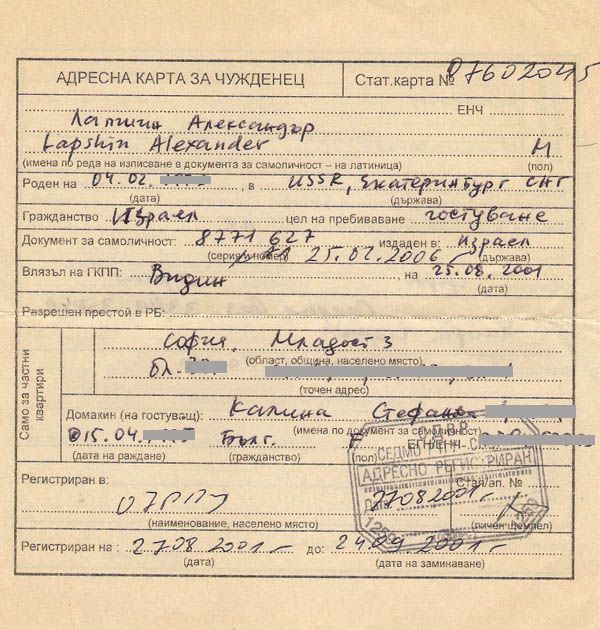 АДРЕСНА КАРТА ЗА ЧУЖДЕНЕЦ
Стат.карта № 07602045
ЕНЧ
Лапшин Александър
Lapshin Alexander М
(имена по реда на изписване в документа за самоличност – на латиница) (пол)
Роден на 04.02. , в USSR, Екатеринбург СНГ
(дата) (държава)
Гражданство Израел цел на пребиваване гостуване
Документ за самоличност: 8771 627 издаден в: Израел
(серия и номер) 25.02.2006 (държава)
Влязъл на ГКПП: Видин на 25.08.2001
(дата)
Разрешен престой в РБ:
Само за частни квартири
София, Младост 3
(област, община, населено място)
бл.
(точен адрес)
Домакин (на гостуващ): Калина Стефанова
(имена по документ за самоличност)
15.04. Бълг. ЕГН/ЕНЧ
(дата на раждане) (гражданство) (пол)
СЕДМО РПУ-С
АДРЕСНО РЕГИСТРИРАН
Регистриран в: Стая/ап. №
07РПУ 27082001
(наименование, населено място) (личен щемпел)
Регистриран на : 2708 2001 до: 2409 2001
(дата) (дата на заминаване)